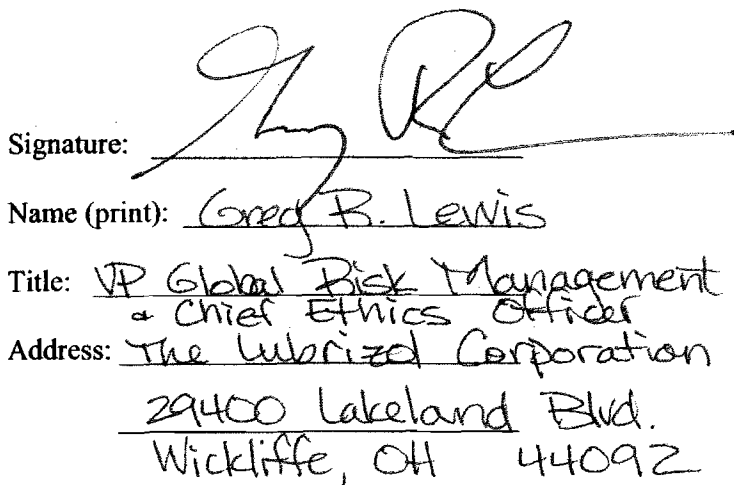 Signature:
Name (print): Greg R. Lewis
Title: VP Global Risk Management
& Chief Ethics Officer
Address: The Lubrizol Corporation
29400 Lakeland Blvd.
Wickliffe, OH 44092